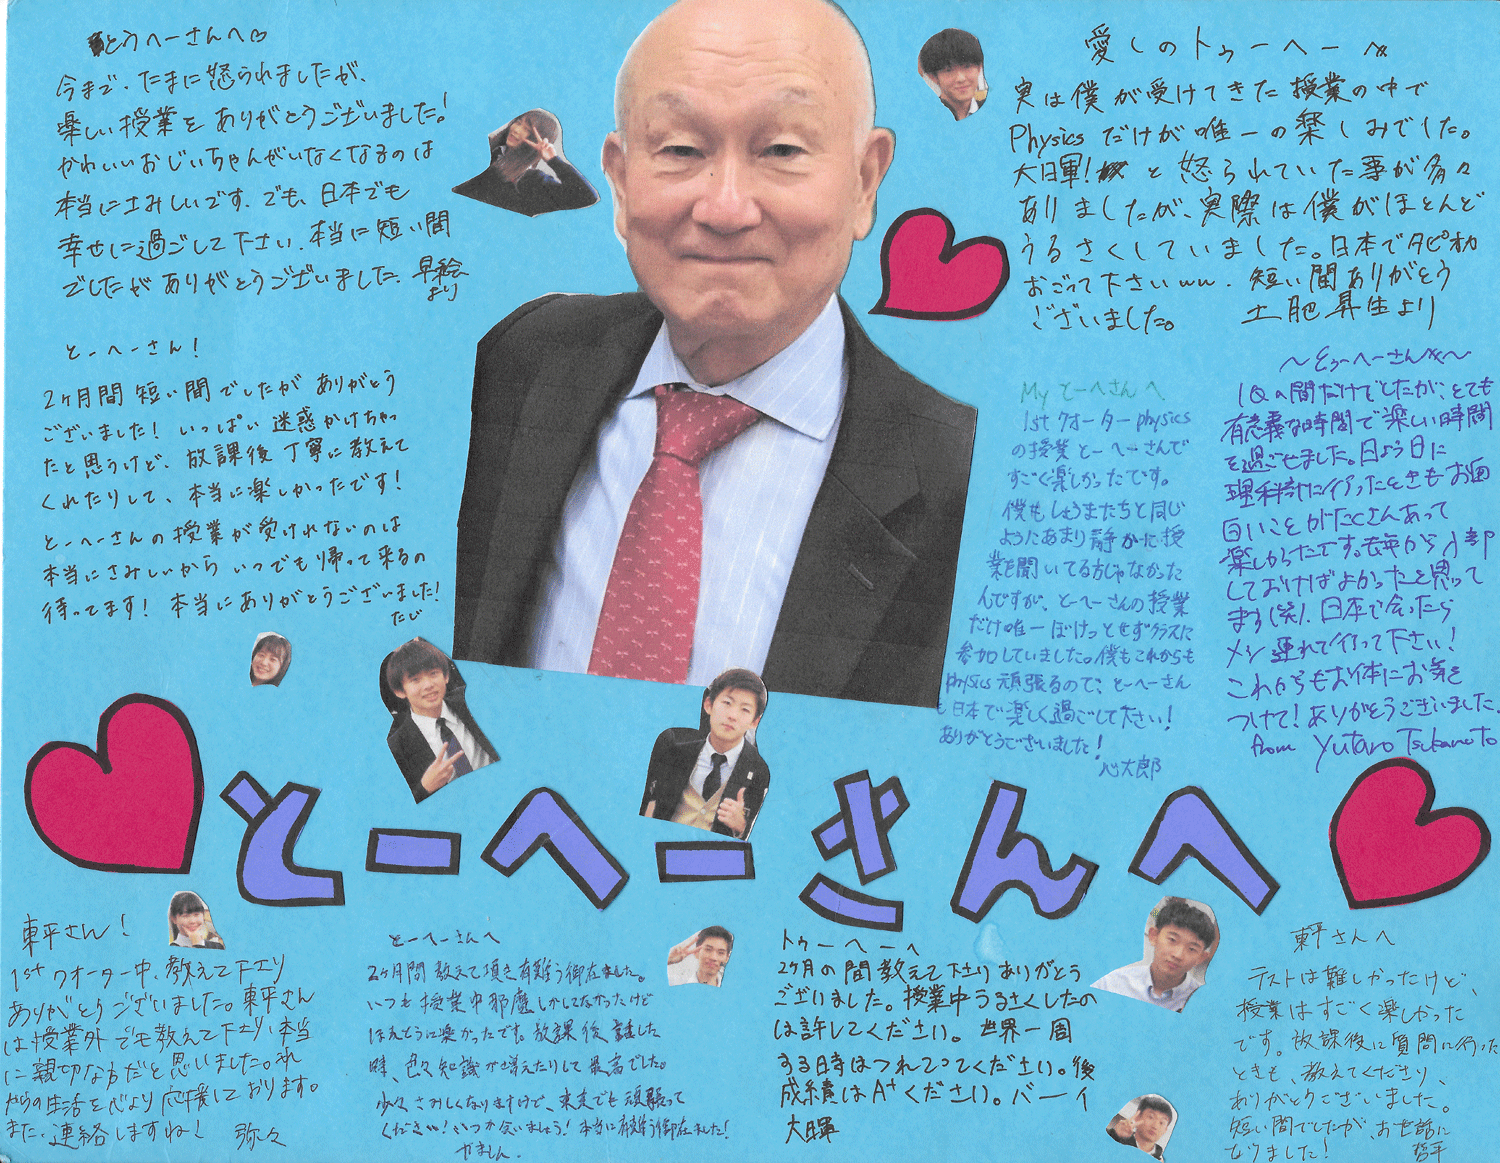 とうへーさんへ♡
今まで、たまに怒られましたが、
楽しい授業をありがとうございました!
かわいいおじいちゃんがいなくなるのは
本当にさみしいです。でも、日本でも
幸せに過ごして下さい。本当に短い間
でしたがありがとうございました。早絵
より
とーへーさん!
2ヶ月間短い間でしたがありがとう
ございました! いっぱい迷惑かけちゃっ
たと思うけど、放課後丁寧に教えて
くれたりして、本当に楽しかったです!
とーへーさんの授業が受けれないのは
本当にさみしいからいつでも帰って来るの
待ってます! 本当にありがとうございました!
愛しのトゥーヘーへ
実は僕が受けてきた授業の中で
Physicsだけが唯一の楽しみでした。
大暉! と怒られていた事が多々
ありましたが、実際は僕がほとんど
うるさくしていました。日本でタピオカ
おごって下さいww. 短い間ありがとう
ございました。 土肥昇生より
My とーへさんへ
1stクオーターphysics
の授業とーへーさんで
すごく楽しかったです。
僕もしょうまたちと同じ
ようにあまり静かに授
業を聞いてる方じゃなかった
んですが、とーへーさんの授業
だけ唯一ぼけっとせずクラスに
参加していました。僕もこれからも
physics頑張るので、とーへーさん
も日本で楽しく過ごして下さい!
ありがとうございました!
心太郎
〜とぅーへーさんへ〜
1Qの間だけでしたが、とても
有意義な時間で楽しい時間
を過ごせました。日よう日に
行ったときもお面
白いことがたくさんあって
楽しかったです。去年から
しておけばよかったと思って
ます(笑)。日本で会ったら
メシ連れて行って下さい!
これからもお体にお気を
つけて! ありがとうございました。
from Yutaro Tsukamoto
とーへーさんへ
東平さん!
1stクオーター中、教えて下さり
ありがとうございました。東平さん
は授業外でも教えて下さり、本当
に親切な方だと思いました。これ
からの生活を心より応援しております。
また、連絡しますね! 弥々
とーへーさんへ
2ヶ月間教えて頂き有難う御在ました。
いつも授業中邪魔しかしてなかったけど
ほんとうに楽かったです。放課後、話した
時、色々知識が増えたりして最高でした。
少々さみしくなりますけど、東京でも頑張って
ください! いつか会いましょう! 本当に有難う御在ました!
トゥーヘーへ
2ヶ月の間教えて下さりありがとう
ございました。授業中うるさくしたの
は許してください。世界一周
する日時はつれてってください。後
成績はA+ください。バーイ
大暉
東平さんへ
テストは難しかったけど、
授業はすごく楽しかった
です。放課後に質問に行った
ときも、教えてくださり、
ありがとうございました。
短い間でしたが、お世話に
なりました! 哲平